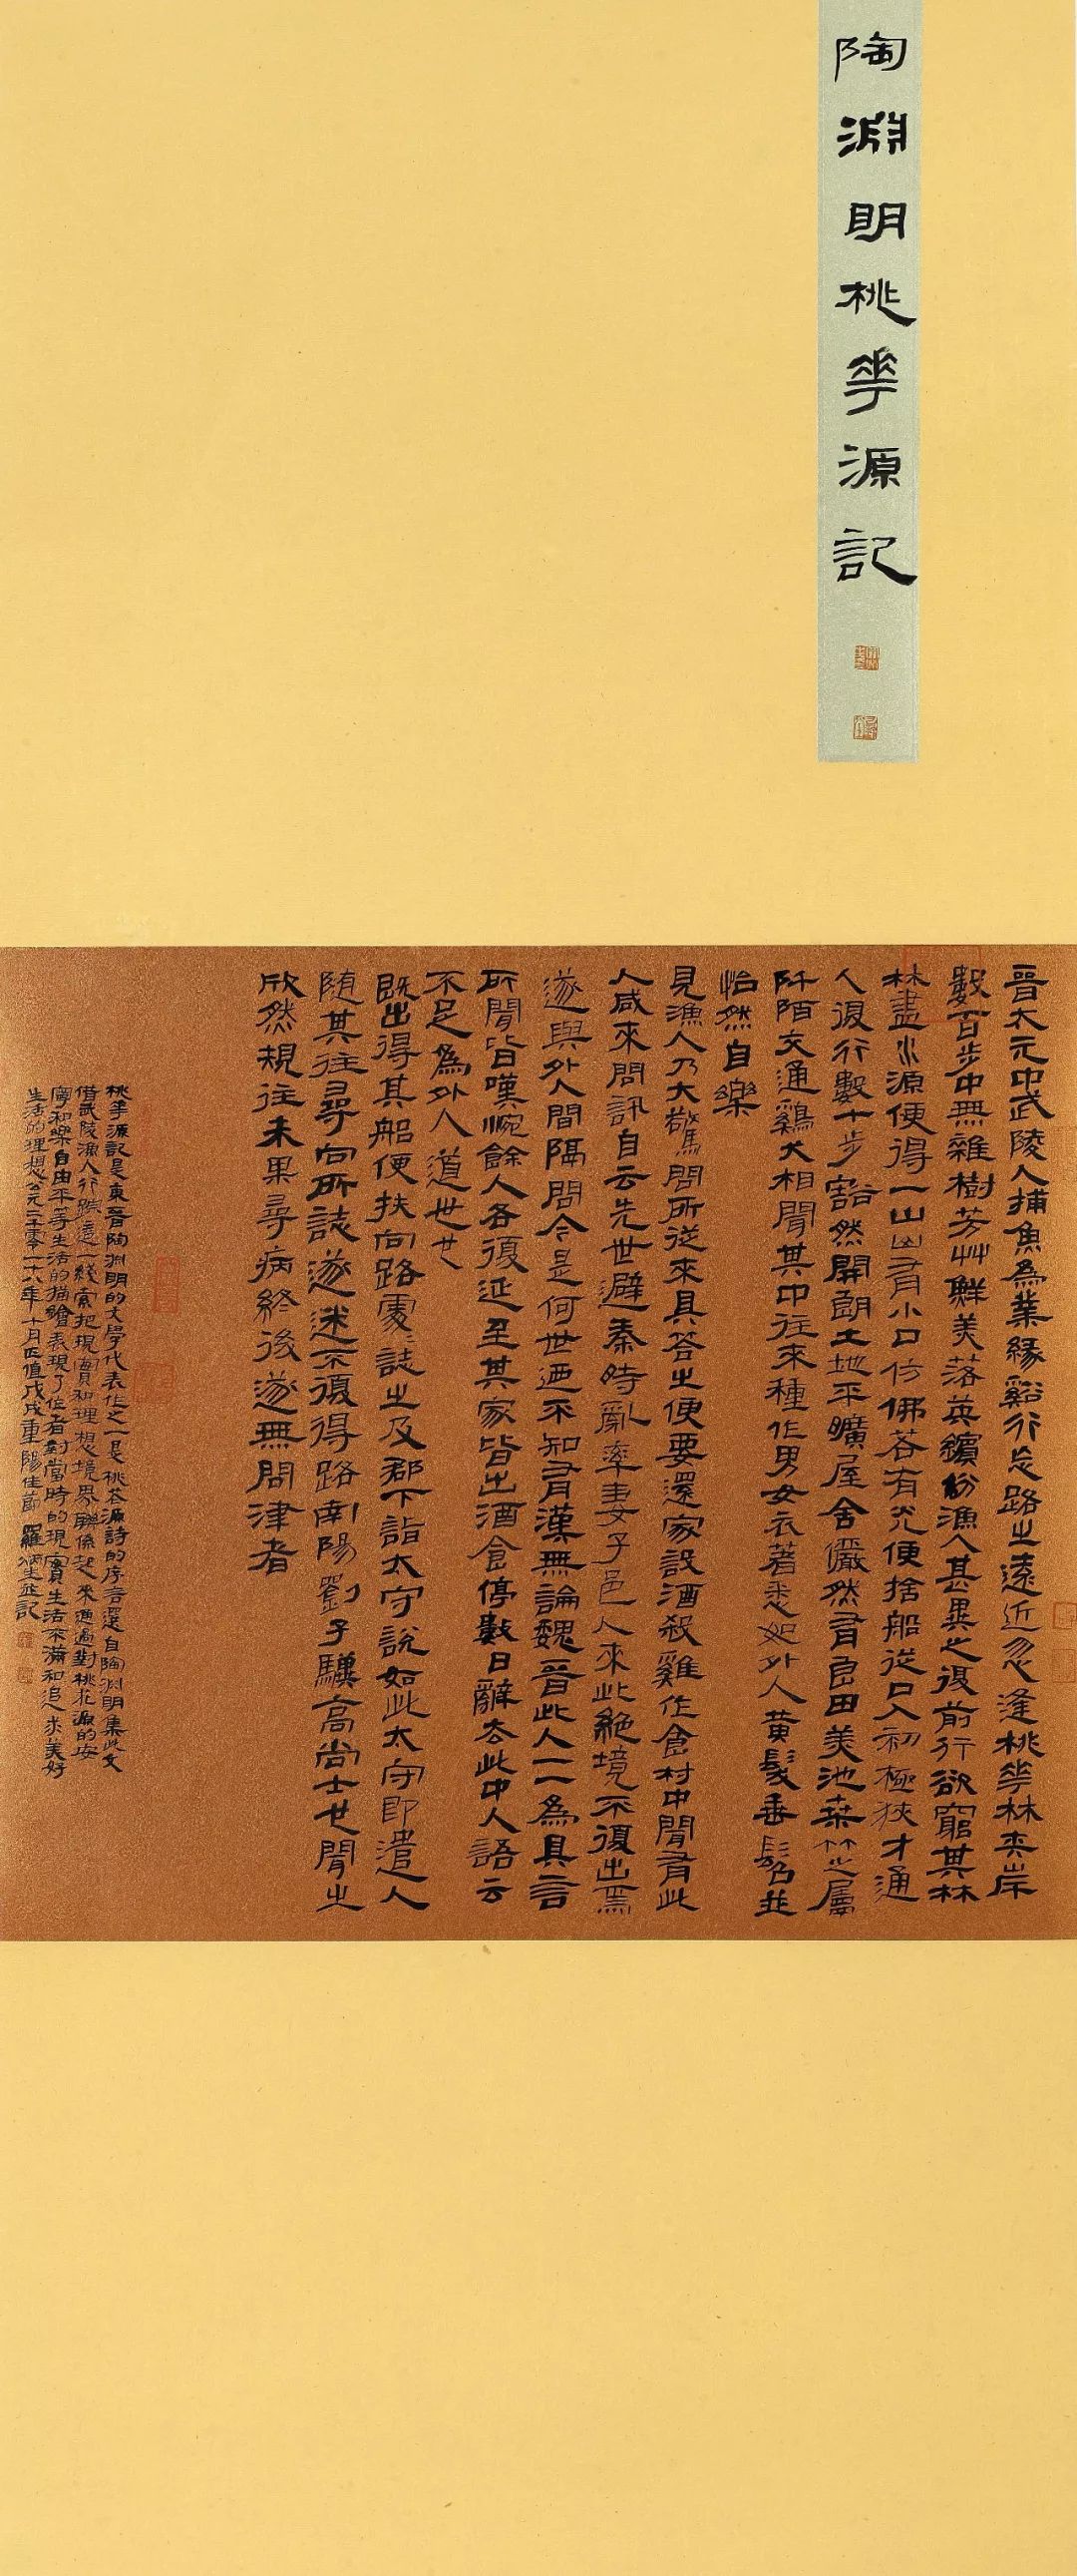 陶淵明桃華源記
晉太元中武陵人捕魚為業緣谿行忘路之遠近忽逢桃華林夾岸
數百步中無雜樹芳艸鮮美落英繽紛漁人甚異之復前行欲窮其林
林盡水源便得一山山有小口仿佛若有光便捨船從口入初極狹才通
人復行數十步豁然開朗土地平曠屋舍儼然有良田美池桑竹之屬
阡陌交通雞犬相聞其中往來種作男女衣著悉如外人黃髮垂髫並
怡然自樂
見漁人乃大驚問所從來具答之便要還家設酒殺雞作食村中聞有此
人咸來問訊自云先世避秦時亂率妻子邑人來此絕境不復出焉
遂與外人間隔問今是何世迺不知有漢無論魏晉此人一一為具言
所聞皆嘆惋餘人各復延至其家皆出酒食停數日辭去此中人語云
不足為外人道世世
既出得其船便扶向路處〻誌之及郡下詣太守說如此太守即遣人
隨其往尋向所誌遂迷不復得路南陽劉子驥高尚士世聞之
欣然規往未果尋病終後遂無問津者
桃華源記是東晉陶淵明的文學代表作之一是桃花源詩的序言選自陶淵明集此文
借武陵漁人行蹤這一綫索把現實和理想境界聯係起來通過對桃花源的安
寧和樂自由平等生活的描繪表現了作者對當時的現實生活不滿和追求美好
生活的理想公元二零一十八年十月正值戊戌重陽佳節羅炳生並記